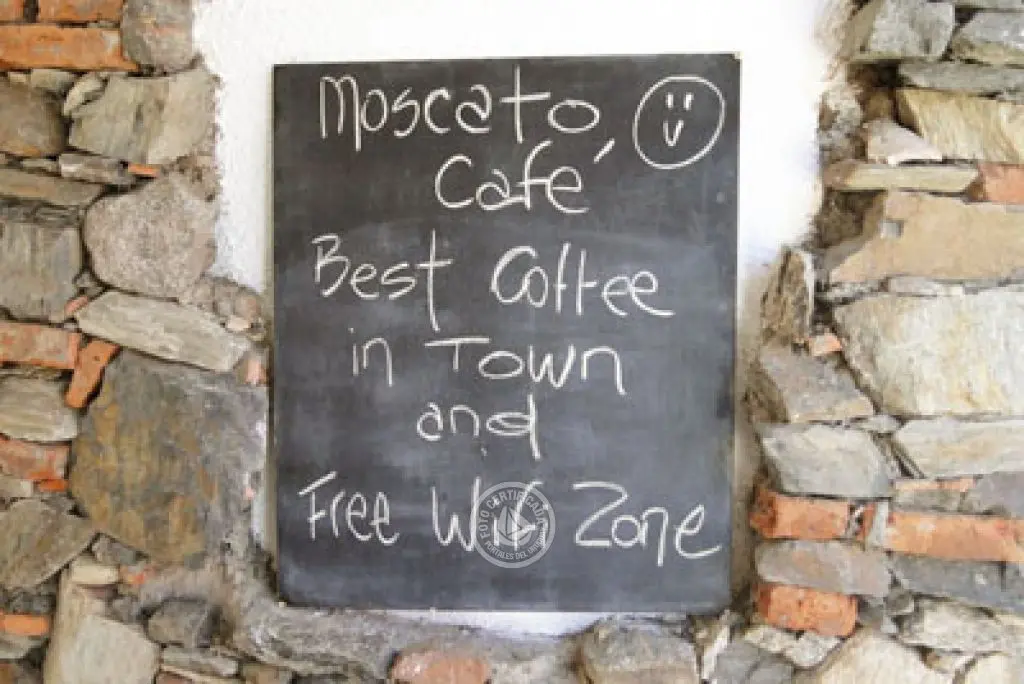 Moscato
Café
Best Coffee
in Town
and
Free Wifi Zone
FOTO CERTIFICADA
PORTALES DEL URUGUAY